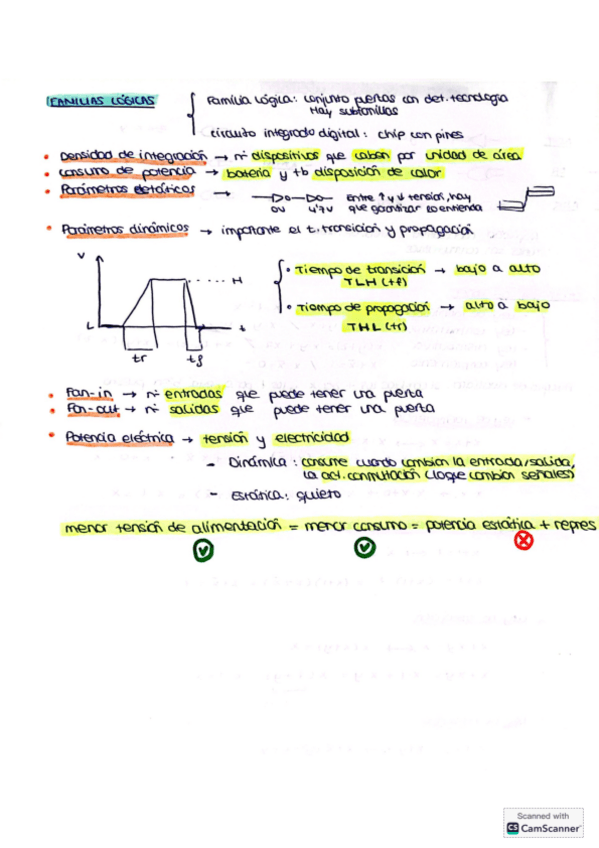 FAMILIAS LÓGICAS
Familia lógica: conjunto puertas con det. tecnología
Hay subfamilias
circuito integrado digital: chip con pines
• Densidad de integración → nº dispositivos que caben por unidad de área
• Consumo de potencia → batería y tb disposición de calor
• Parámetros estáticos → Entre ↑ y ↓ tensión, hay
0V 4'7V que garantizar se entienda
• Parámetros dinámicos → importante el t. transición y propagación
V
H
L
t
tr tf
• Tiempo de transición → bajo a alto
TLH (tf)
• Tiempo de propagación → alto a bajo
THL (tr)
• Fan-in → nº entradas que puede tener una puerta
• Fan-out → nº salidas que puede tener una puerta
• Potencia eléctrica → tensión y electricidad
- Dinámica: consume cuando cambian la entrada/salida,
la act. conmutación (lo que cambian señales)
- Estática: quieto
menor tensión de alimentación = menor consumo = potencia estática + repres
Scanned with
CS CamScanner